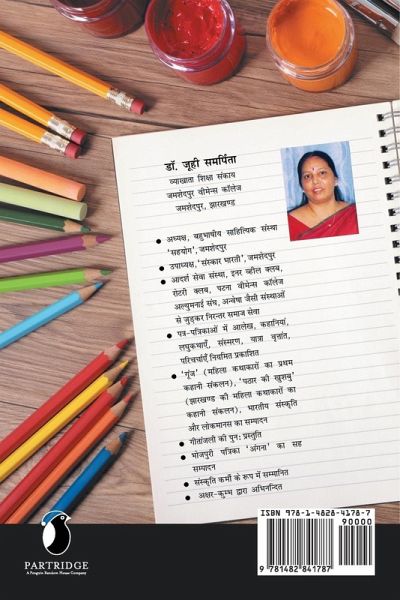 डॉ. जूही समर्पिता
व्याख्याता शिक्षा संकाय
जमशेदपुर वीमेन्स कॉलेज
जमशेदपुर, झारखण्ड
• अध्यक्ष, बहुभाषीय साहित्यिक संस्था
'सहयोग', जमशेदपुर
• उपाध्यक्ष, 'संस्कार भारती', जमशेदपुर
• आदर्श सेवा संस्था, इनर व्हील क्लब,
रोटरी क्लब, पटना वीमेन्स कॉलेज
अल्युमनाई संघ, अन्वेषा जैसी संस्थाओं
से जुड़कर निरन्तर समाज सेवा
• पत्र-पत्रिकाओं में आलेख, कहानियां,
लघुकथाएँ, संस्मरण, यात्रा वृत्तांत,
परिचर्चाएँ नियमित प्रकाशित
• 'गूंज' (महिला कथाकारों का प्रथम
कहानी संकलन), 'पठार की खुशबु'
(झारखण्ड की महिला कथाकारों का
कहानी संकलन), भारतीय संस्कृति
और लोकमानस का सम्पादन
• गीतांजली की पुन: प्रस्तुति
• भोजपुरी पत्रिका 'अंगना' का सह
सम्पादन
• संस्कृति कर्मी के रूप में सम्मानित
• अक्षर-कुम्भ द्वारा अभिनन्दित
ISBN 978-1-4828-4178-7
90000
9 781482 841787
PARTRIDGE
A Penguin Random House Company